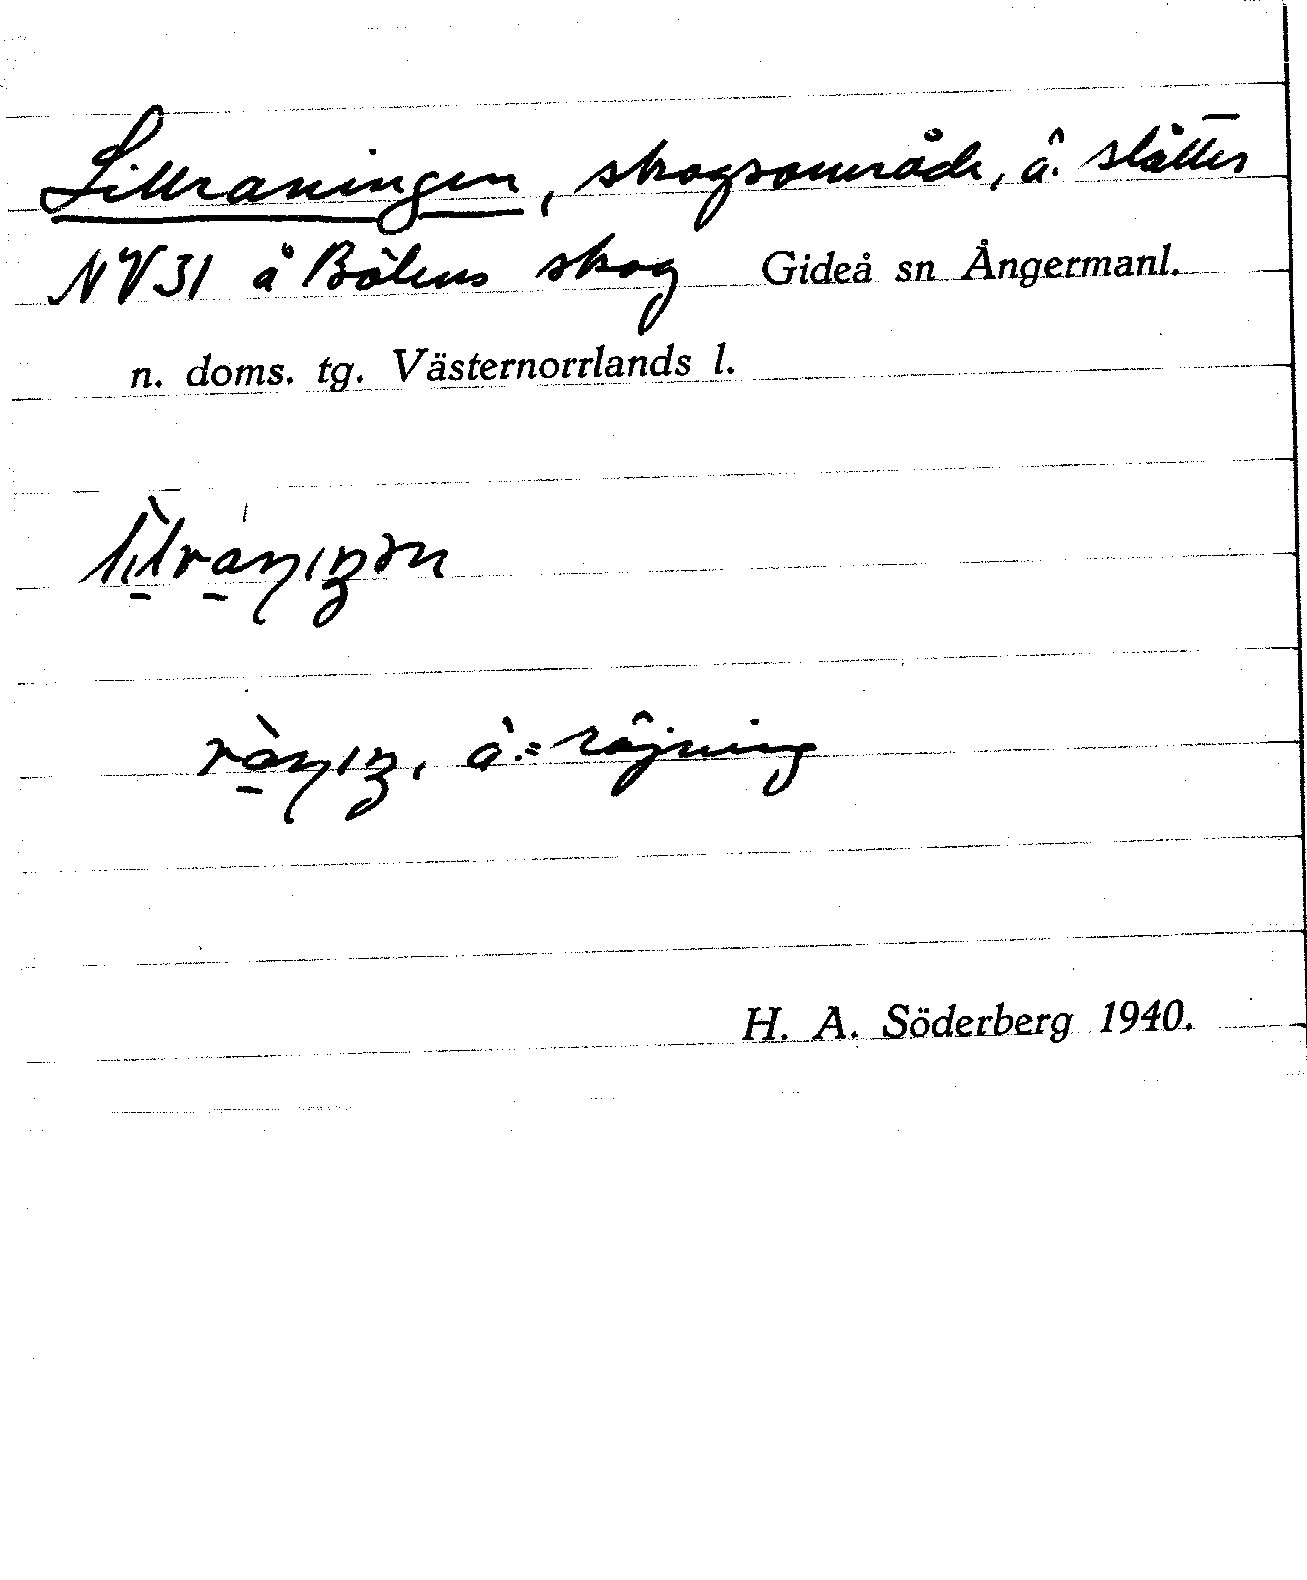 Lillraningen, skogsområde, ä. slåtter
NV31 å Bölens skog Gideå sn Ångermanl.
n. doms. tg. Västernorrlands l.
ä. = röjning
H. A. Söderberg 1940.